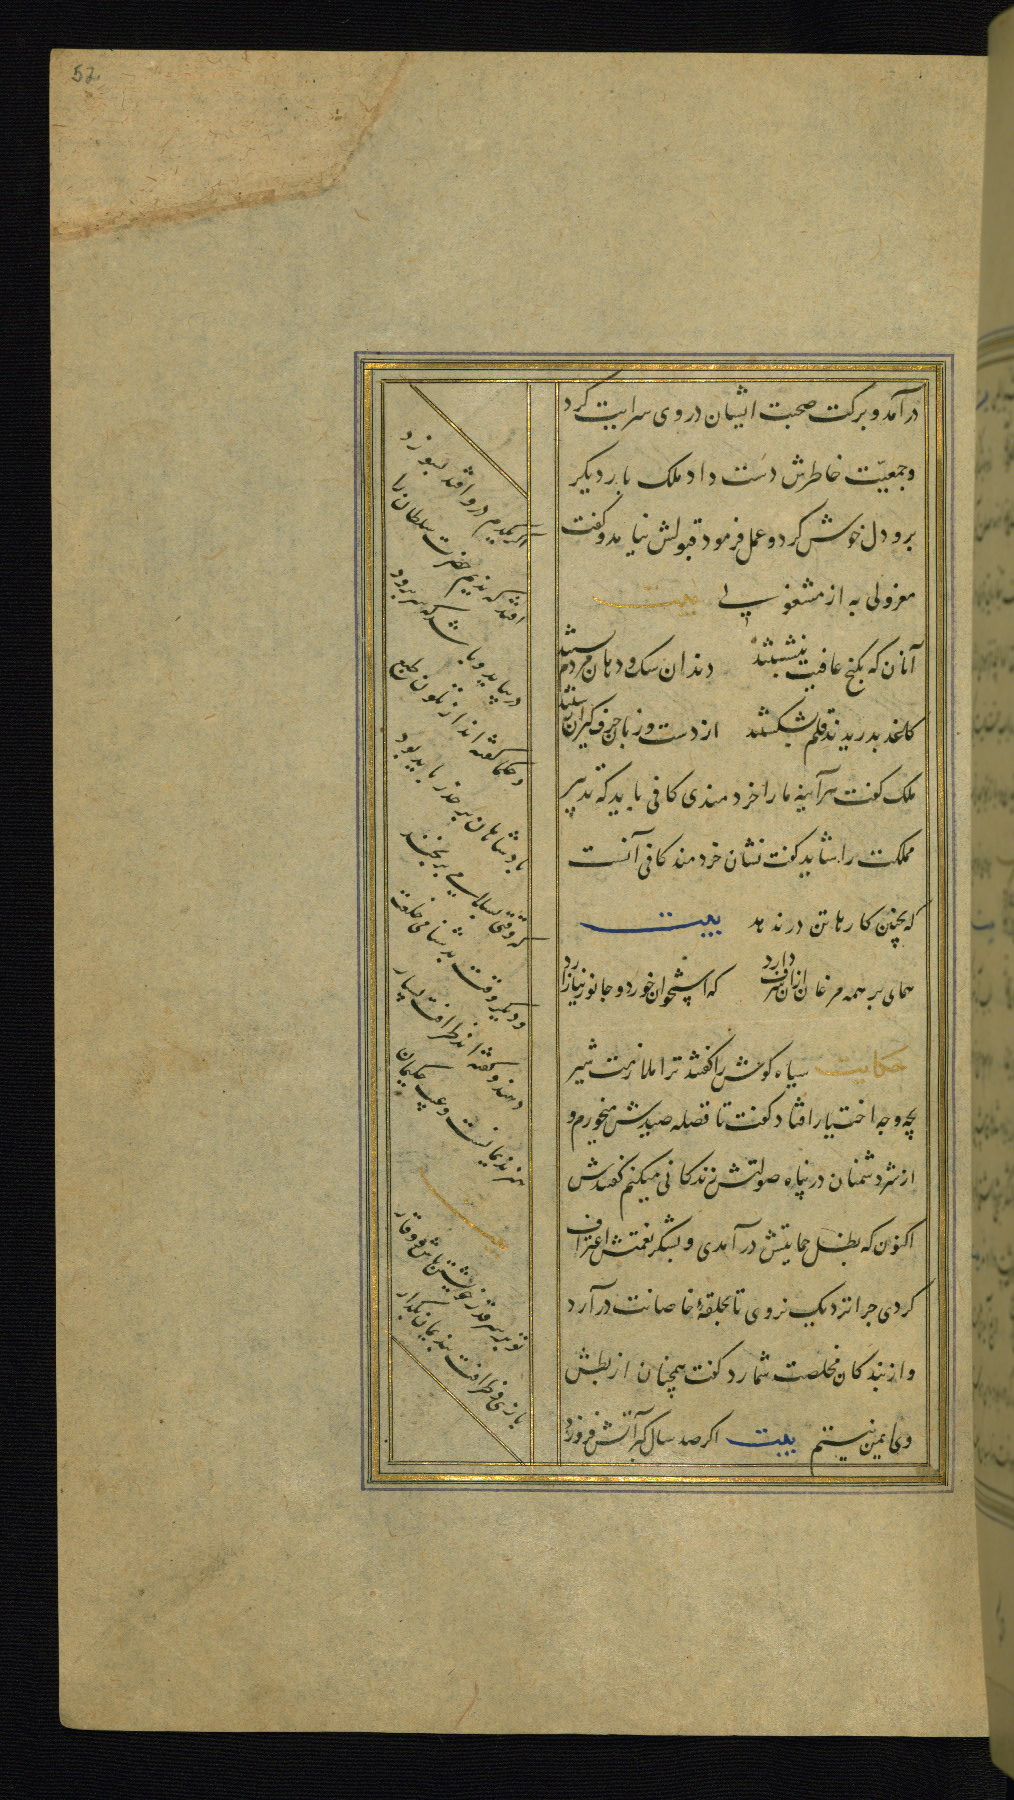 52
درآمد و برکت صحبت ایشان در وی سرایت کرد
و جمعیّت خاطرش دست داد ملک بار دیکر
برو دل خوش کرد و عمل فرمود قبولش نیامد و کفت
معزولی به از مشغولی بیت
آنان که بکنج عافیت بنشستند دندان سک و دهان مردم بستند
کاغذ بدریدند قلم بشکستند از دست و زبان حرف کیران رستند
ملک کفت هرآینه ما را خردمندی کافی باید که تدبیر
مملکت را شاید کفت نشان خردمند کافی آنست
که بچنین کارها تن در ندهد بیت
همای بر همه مرغان از ان شرف دارد که استخوان خورد و جانور نیازارد
حکایت سیاه کوش را کفتند ترا ملازمت شیر
بچه وجه اختیار افتاد کفت تا فضله صیدش میخورم و
از شر دشمنان در پناه صولتش زندکانی میکنم کفتندش
اکنون که بظل حمایتش درآمدی و بشکر نعمتش اعتراف
کردی چرا نزدیک نروی تا بحلقهٔ خاصانت درآرد
و از بندکان مخلصت شمارد کفت همچنان از بطش
وی ایمن نیستم بیت اکر صد سال کبر آتش فروزد
اکر یکدم درو افتد بسوزد
افتد که ندیم حضرت سلطان را
زر بیاید و باشد که سر برود
و حکما کفته اند از تلون طبع
پادشاهان بر حذر باید بود
که وقتی بسلامی برنجند
و دیکر وقت بدشنامی خلعت
دهند و کفته اند ظرافت بسیار
هنر ندیمانست و عیب حکیمان
بیت
تو بر سر قدر خویشتن باش و وقار
بازی و ظرافت بندیمان بکذار